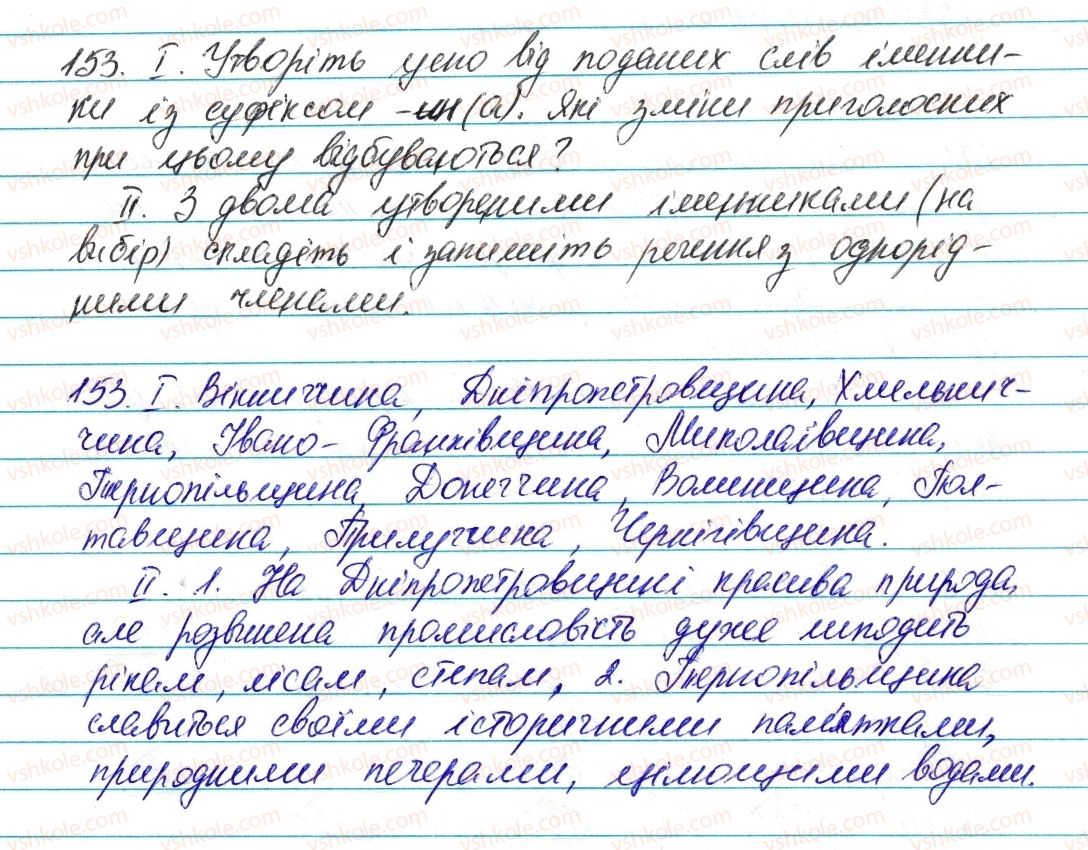 153. I. Утворіть усно від поданих слів іменни-
ки із суфіксом -ин(а). Які зміни приголосних
при цьому відбуваються?
II. З двома утвореними іменниками (на
вибір) складіть і запишіть речення з однорід-
ними членами.
153. I. Вінниччина, Дніпропетровщина, Хмельнич-
чина, Івано-Франківщина, Миколаївщина,
Тернопільщина, Донеччина, Волинщина, Пол-
тавщина, Прилуччина, Чернігівщина.
II. 1. На Дніпропетровщині красива природа,
але розвинена промисловість дуже шкодить
рікам, лісам, степам. 2. Тернопільщина
славиться своїми історичними пам'ятками,
природними печерами, цілющими водами.